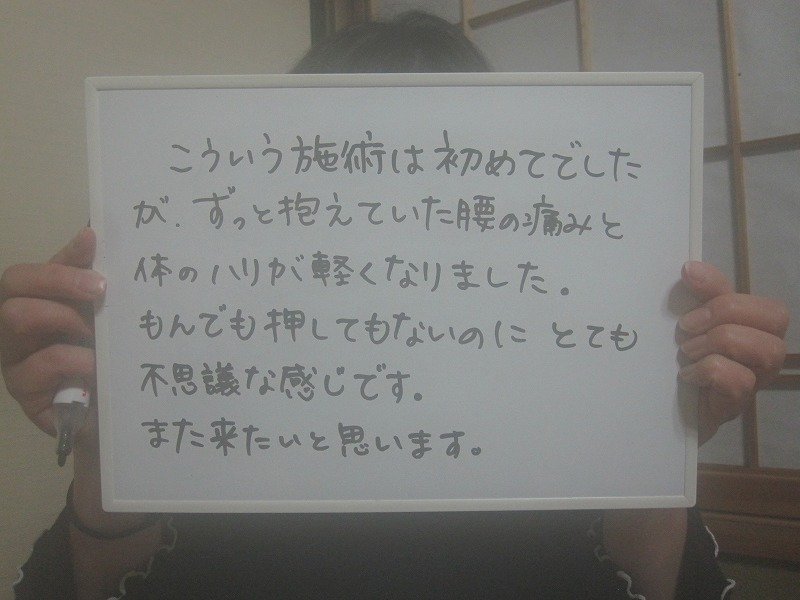 こういう施術は初めてでした
が、ずっと抱えていた腰の痛みと
体のハリが軽くなりました。
もんでも押してもないのに とても
不思議な感じです。
また来たいと思います。